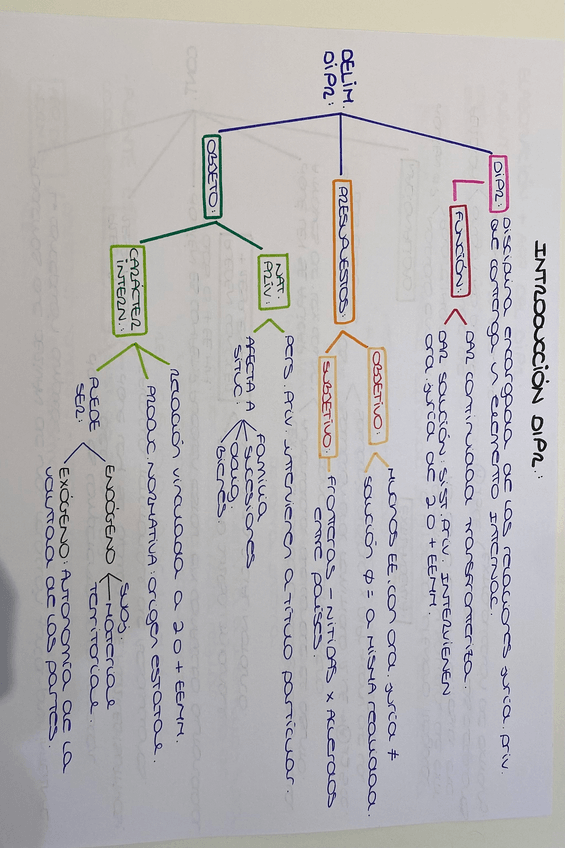 INTRODUCCIÓN DIPR:
DELIM. DIPR:
DIPR: DISCIPLINA ENCARGADA DE LAS RELACIONES JURÍD. PRIV.
QUE CONTENGA UN ELEMENTO INTERNAC.
FUNCIÓN:
DAR CONTINUIDAD TRANSFRONTERIZA.
DAR SOLUCIÓN: SI ST. PRIV. INTERVIENEN
ORD. JURÍD. DE 2 O + EEMM.
PRESUPUESTOS:
OBJETIVO:
MUCHOS EE. CON ORD. JURÍD ≠
SOLUCIÓN ≠ = A MISMA REALIDAD.
SUBJETIVO:
FRONTERAS - NÍTIDAS X ACUERDOS
ENTRE PAÍSES.
OBJETO:
NAT. PRIV:
PERS. PRIV. INTERVIENEN A TÍTULO PARTICULAR.
AFECTA A SITUC
FAMILIA
SUCESIONES
OBLIG.
BIENES.
CARÁCTER INTERN.:
RELACIÓN VINCULADA A 2 O + EEMM.
PRODUC. NORMATIVA: ORIGEN ESTATAL.
PUEDE SER:
ENDÓGENO
SUBJ.
MATERIAL
TERRITORIAL.
EXÓGENO: AUTONOMÍA DE LA
VOLUNTAD DE LAS PARTES.